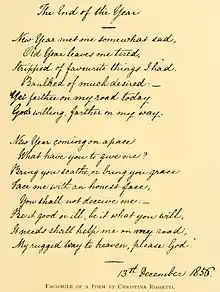 The End of the Year
New Year met me somewhat sad,
Old Year leaves me tired,
Stripped of favourite things I had,
Baulked of much desired:—
Yet farther on my road today
God willing, farther on my way.
New Year coming on apace
What have you to give me?
Bring you scathe, or bring you grace
Face me with an honest face,
You shall not deceive me:—
Be it good or ill, be it what you will,
It needs shall help me on my road,
My rugged way to heaven, please God.
13th December 1856
FACSIMILE OF A POEM BY CHRISTINA ROSSETTI.